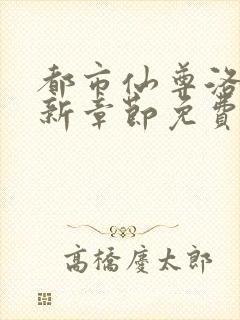 都市仙尊洛
新章節免費
高橋慶太郎